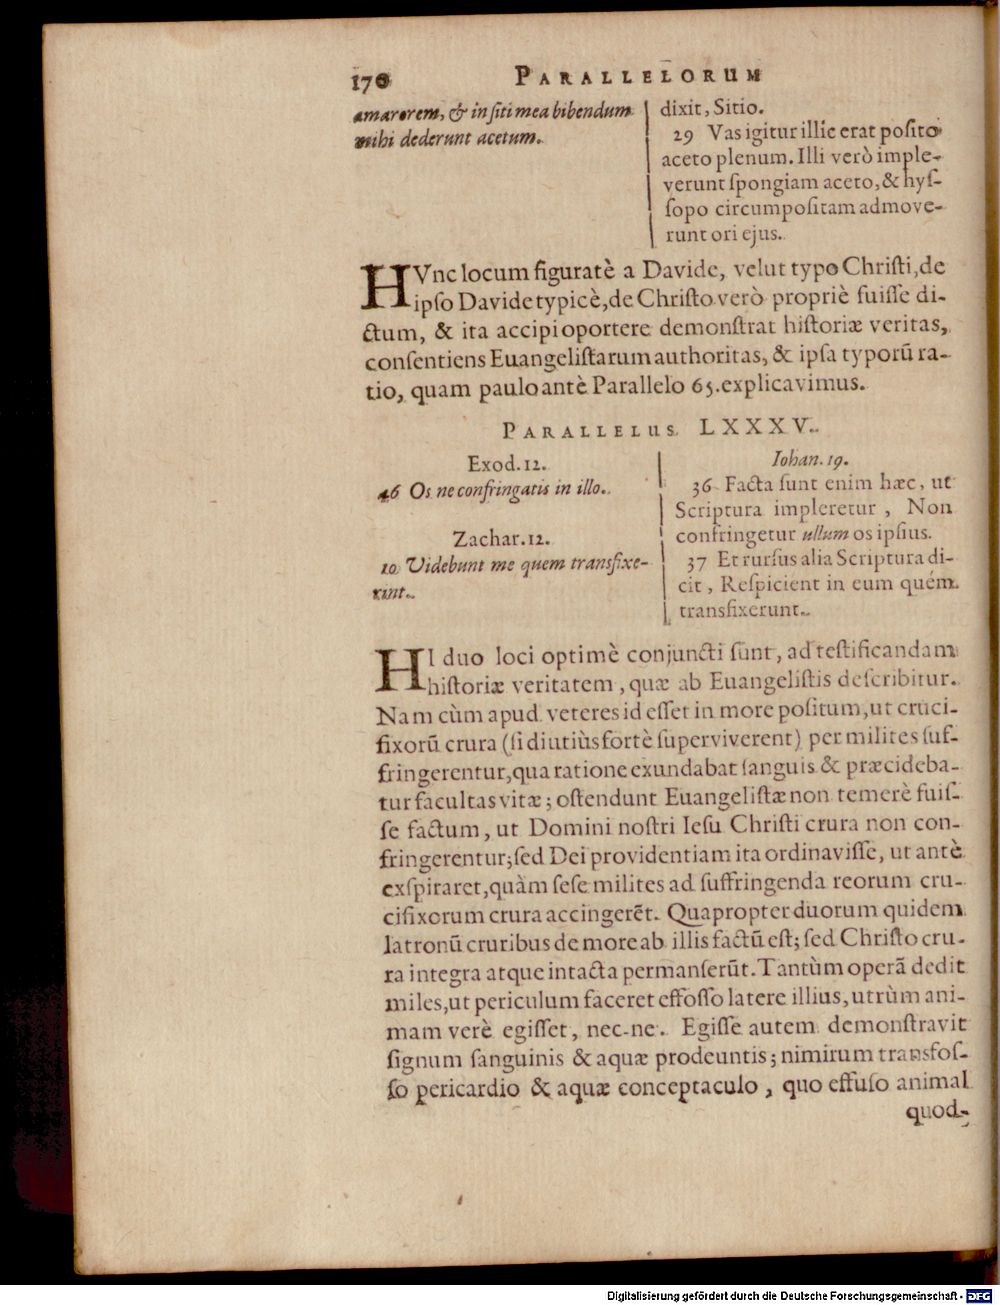 170 PARALLELORUM
amarorem, & in siti mea bibendum
mihi dederunt acetum.
dixit, Sitio.
29 Vas igitur illîc erat posito
aceto plenum. Illi verò imple-
verunt spongiam aceto, & hys-
sopo circumpositam admove-
runt ori ejus.
HVnc locum figuratè a Davide, velut typo Christi, de
ipso Davide typicè, de Christo verò propriè fuisse di-
ctum, & ita accipi oportere demonstrat historiæ veritas,
consentiens Euangelistarum authoritas, & ipsa typorū ra-
tio, quam paulo antè Parallelo 65. explicavimus.
PARALLELUS LXXXV.
Exod. 12.
46 Os ne confringatis in illo.
Zachar. 12.
10 Videbunt me quem transfixe-
rint.
Iohan. 19.
36 Facta sunt enim hæc, ut
Scriptura impleretur, Non
confringetur ullum os ipsius.
37 Et rursus alia Scriptura di-
cit, Respicient in eum quem
transfixerunt.
HI duo loci optimè conjuncti sunt, ad testificandam
historiæ veritatem, quæ ab Euangelistis describitur.
Nam cùm apud veteres id esset in more positum, ut cruci-
fixorū crura (si diutiùs fortè superviverent) per milites suf-
fringerentur, qua ratione exundabat sanguis & præcideba-
tur facultas vitæ; ostendunt Euangelistæ non temerè fuis-
se factum, ut Domini nostri Iesu Christi crura non con-
fringerentur; sed Dei providentiam ita ordinavisse, ut antè
exspiraret, quàm sese milites ad suffringenda reorum cru-
cifixorum crura accingerēt. Quapropter duorum quidem
latronū cruribus de more ab illis factū est; sed Christo cru-
ra integra atque intacta permanserūt. Tantùm operā dedit
miles, ut periculum faceret effosso latere illius, utrùm ani-
mam verè egisset, nec-ne. Egisse autem demonstravit
signum sanguinis & aquæ prodeuntis; nimirum transfos-
so pericardio & aquæ conceptaculo, quo effuso animal
quod-
Digitalisierung gefördert durch die Deutsche Forschungsgemeinschaft - DFG